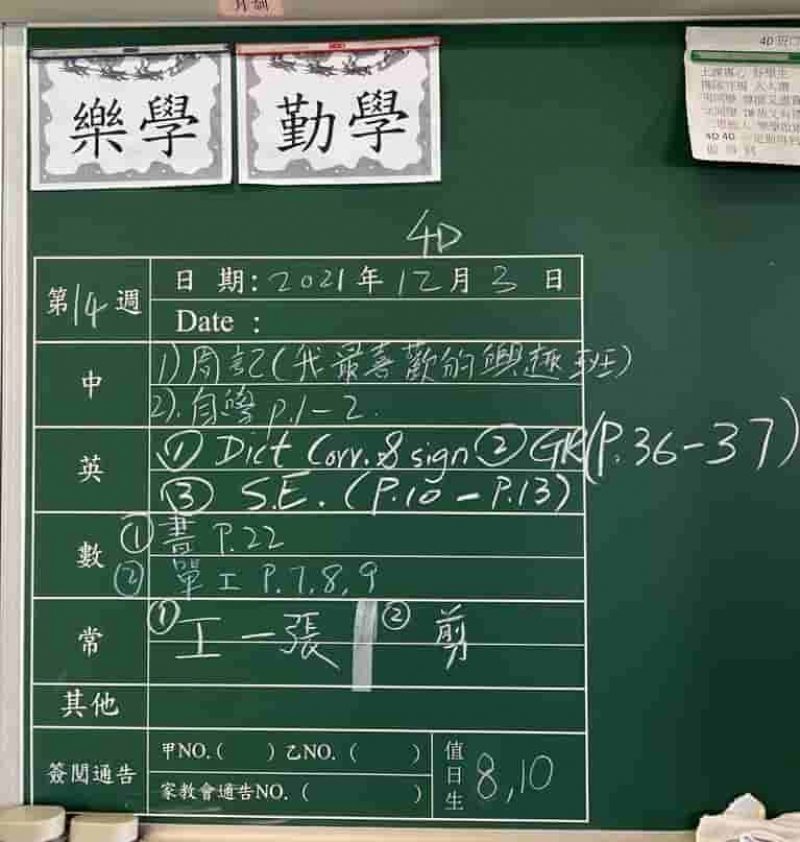 樂學
勤學
4D
4D
第14週
日 期：2021年12月3日
Date :
中
1)周記(我最喜歡的興趣班)
2).自學 p.1-2.
英
① Dict Corr. & sign ② GR(P.36-37)
③ S.E. (P.10 - P.13)
數
① 書 P.22
② 單工 P.7,8,9
常
① 工一張 ② 剪
其他
簽閱通告
甲NO.( ) 乙NO. ( )
家教會通告NO. ( )
值日生
8,10